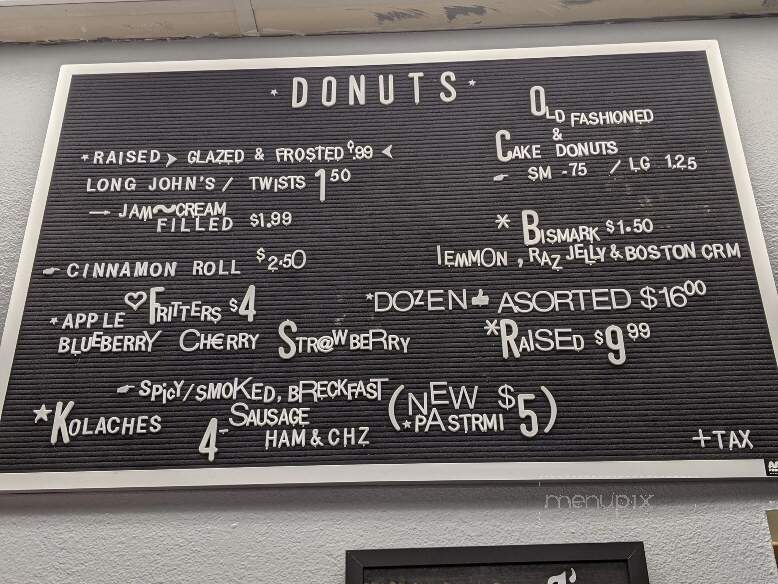 * DONUTS *
* RAISED > GLAZED & FROSTED $.99 <
LONG JOHN'S / TWISTS 1 50
JAM~CREAM
FILLED $1.99
CINNAMON ROLL $2.50
* APPLE ♡ FRITTERS $4
BLUEBERRY CH€RRY STR@WBERRY
OLD FASHIONED
&
CAKE DONUTS
SM -75 / LG 1.25
* BISMARK $1.50
lEMMON, RAZ JELLY & BOSTON CRM
*DOZEN 👍 ASORTED $16 00
*RAISED $9 99
SPiCY/SMOKED, BRECKFAST
*KOLACHES 4- SAUSAGE
HAM & CHZ
(NEW $5)
*PASTRMI
+TAX
menupix